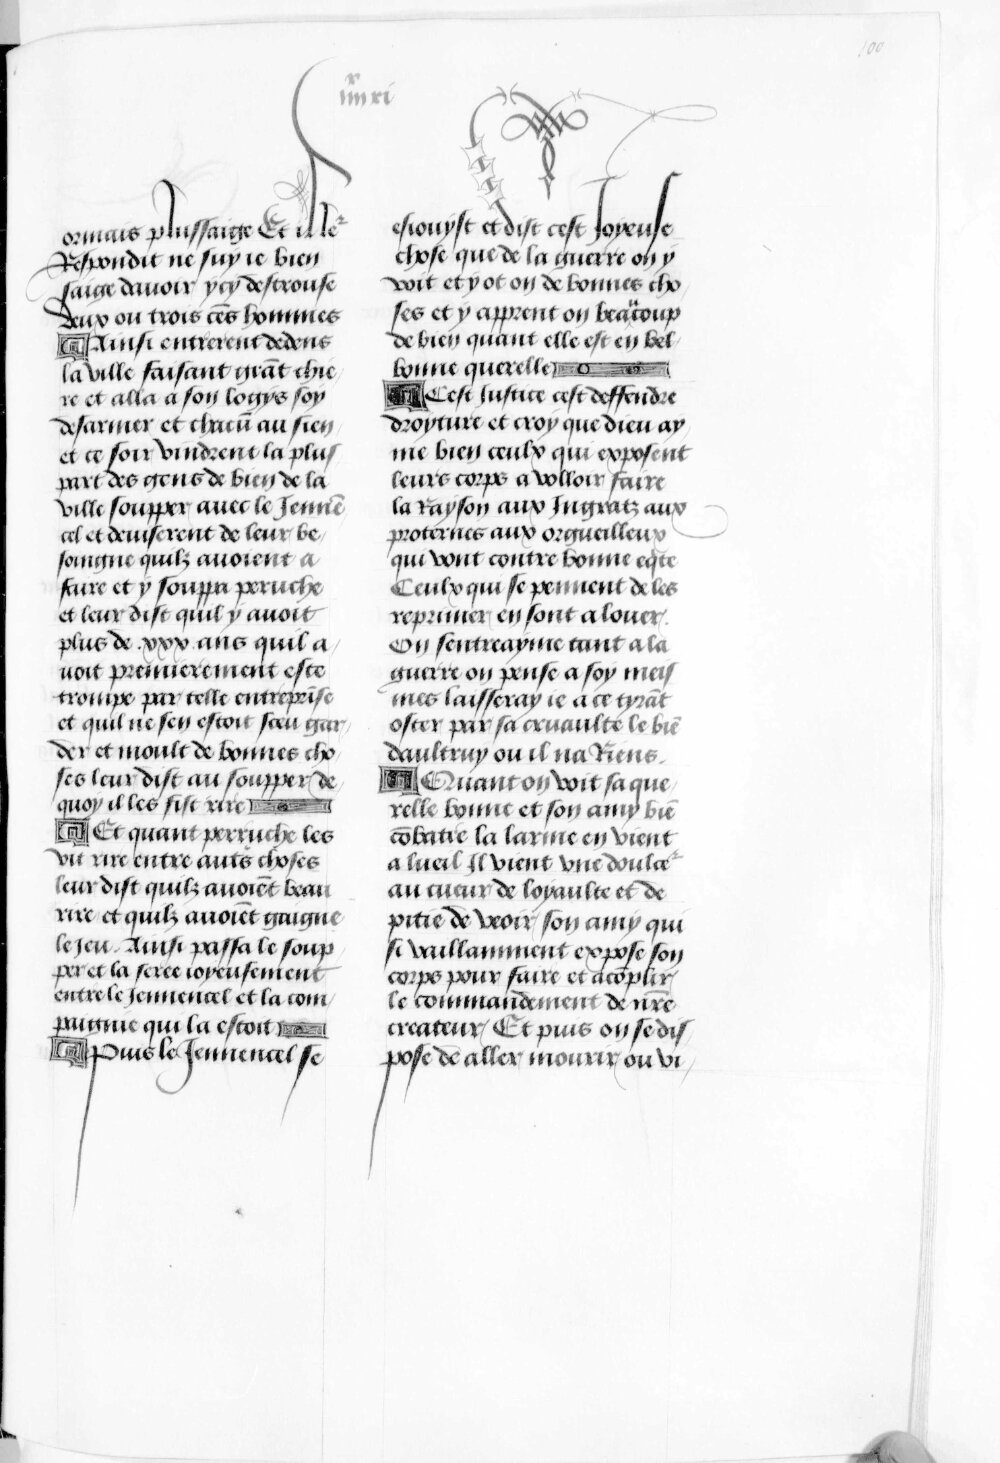 100
iiii^xx xi
ormais plussaige Et il le
Respondit ne suy ie bien
saige dauoir ycy destrousse
deux ou trois cẽs hommes
Ainsi entrerent dedens
la ville faisant grãt chie
re et alla a son logys soy
desarmer et chacũ au sien
et ce soir vindrent la plus
part des gens de bien de la
ville soupper auec le Jennẽ
cel et deuiserent de leur be
soingne quilz auoient a
faire et y souppa peruche
et leur dist quil y auoit
plus de .xxx. ans quil a
uoit premierement este
trompe par telle entreprise
et quil ne sen estoit sceu gar
der et moult de bonnes cho
ses leur dist au soupper de
quoy il les fist rire
Et quant perruche les
vit rire entre autѕ choses
leur dist quilz auoiẽt beau
rire et quilz auoiẽt gaigne
le jeu. Ainsi passa le soup
per et la seree ioyeusement
entre le Jennencel et la com
paignie qui la estoit
Puis le Jennencel se
esiouyst et dist cest Joyeuse
chose que de la guerre on y
voit et y ot on de bonnes cho
ses et y apprent on beaucoup
de bien quant elle est en bel
bonne querelle
Cest Justice cest deffendre
droyture et croy que dieu ay
me bien ceulx qui exposent
leurs corps a volloir faire
la Rayson aux Ingratz aux
proternes aux orgueilleux
qui vont contre bonne eqte
Ceulx qui se pennent de les
reprimer en sont a louer.
On sentreayme tant a la
guerre on pense a soy meis
mes laisseray ie a ce tyrãt
oster par sa cruaulte le biẽ
daultruy ou il na Riens.
Quant on voit sa que
relle bonne et son amy biẽ
cõbatre la larme en vient
a lueil Il vient vne doulce^r
au cueur de loyaulte et de
pitie de veoir son amy qui
si vaillamment expose son
corps pour faire et acõplir
le commandement de nr̃e
createur Et puis on se dis
pose de aller mourir ou vi